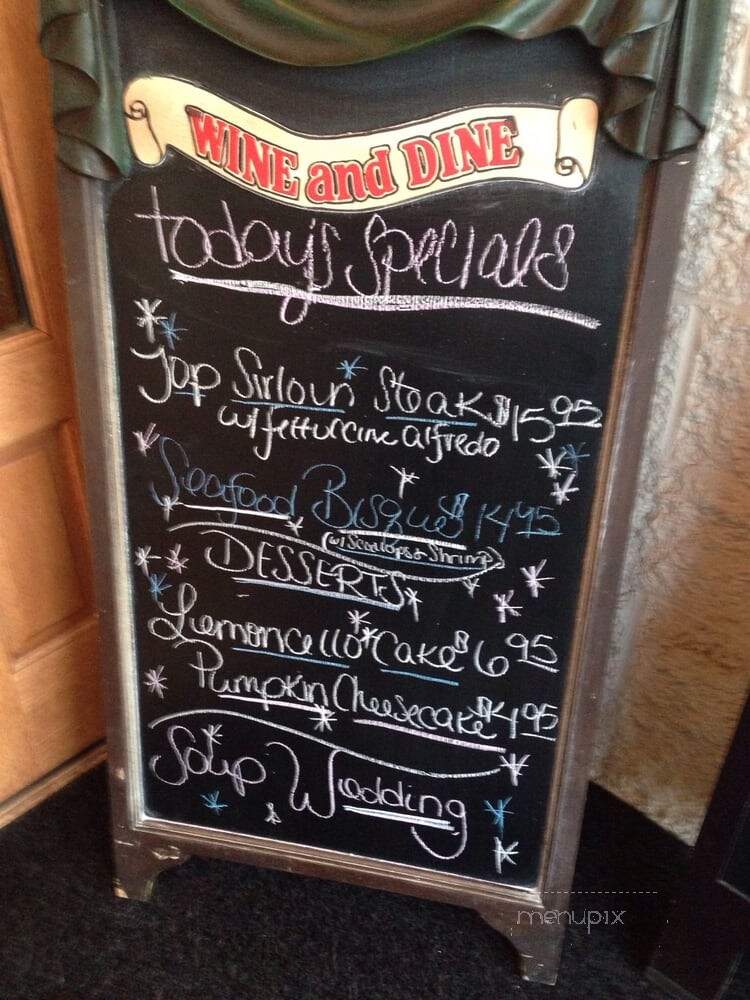 WINE and DINE
today's specials
Top Sirloin Steak $15.95
w/ fettuccine alfredo
Seafood Bisque $14.95
(w/ Scallops & Shrimp)
DESSERTS
Lemoncello Cake $6.95
Pumpkin Cheesecake $4.95
Soup Wedding
menupix